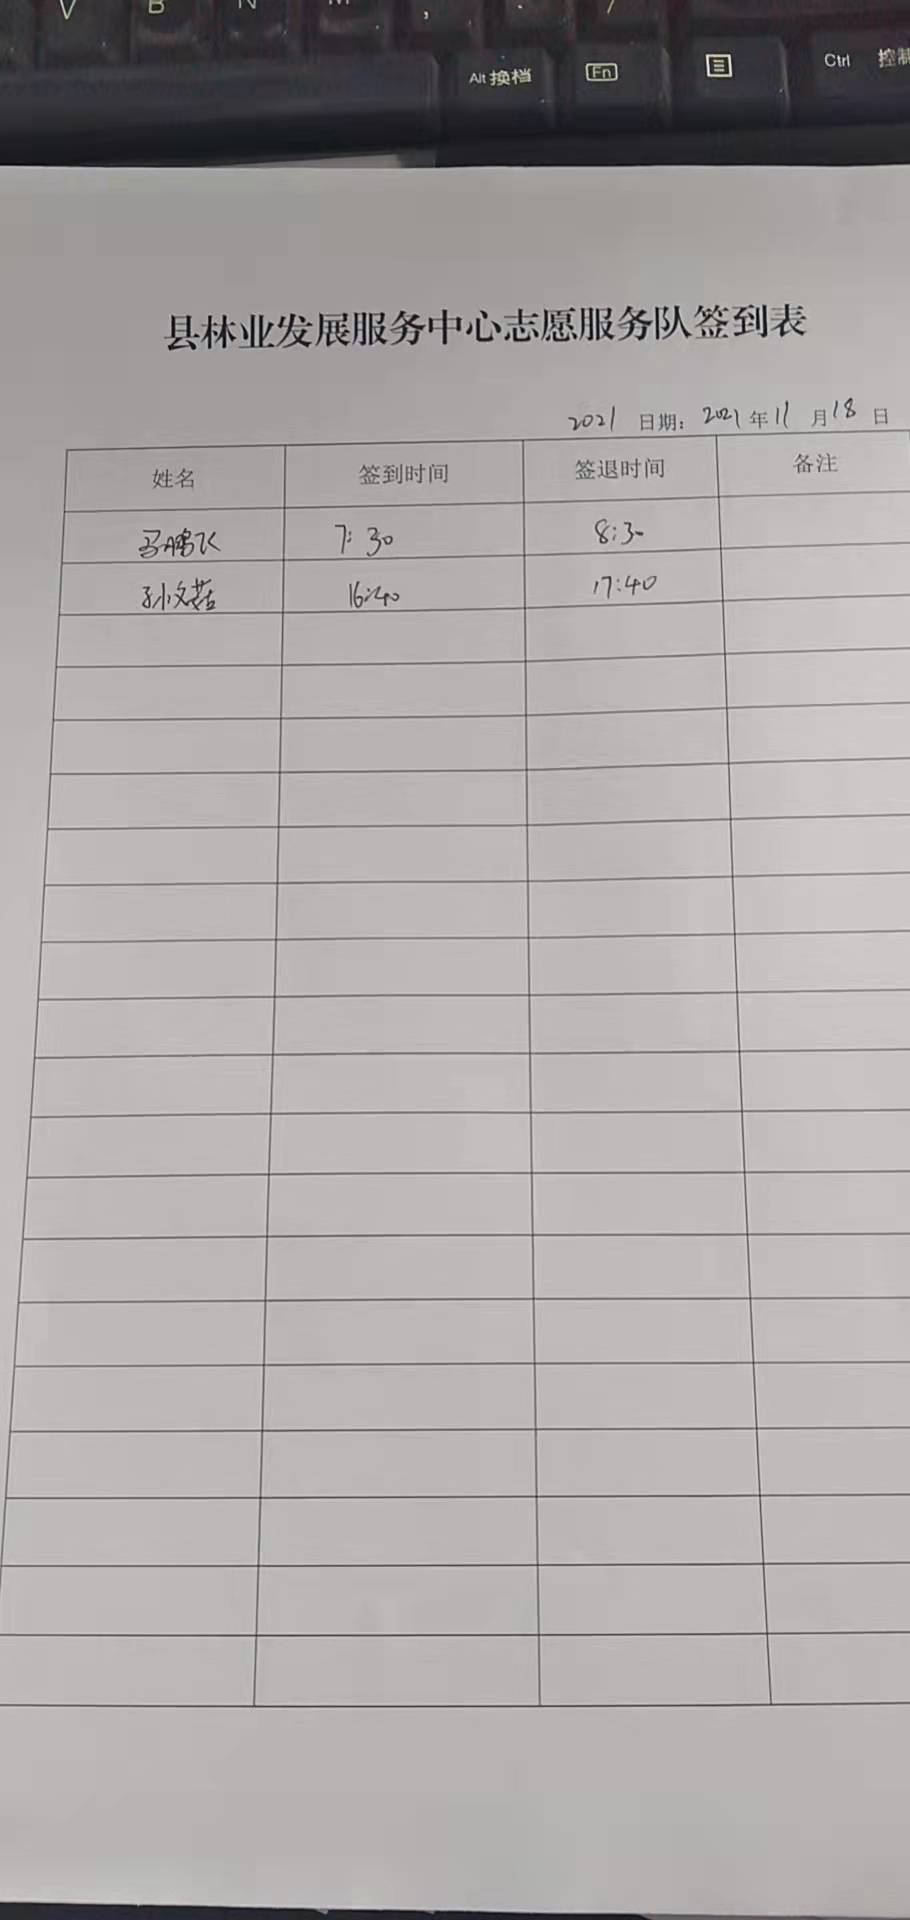 V B N M , . /
Alt 换档 Fn Ctrl 控制
县林业发展服务中心志愿服务队签到表
2021 日期: 2021 年 11 月 18 日
姓名 签到时间 签退时间 备注
马鹏飞 7:30 8:30
孙文茹 16:40 17:40